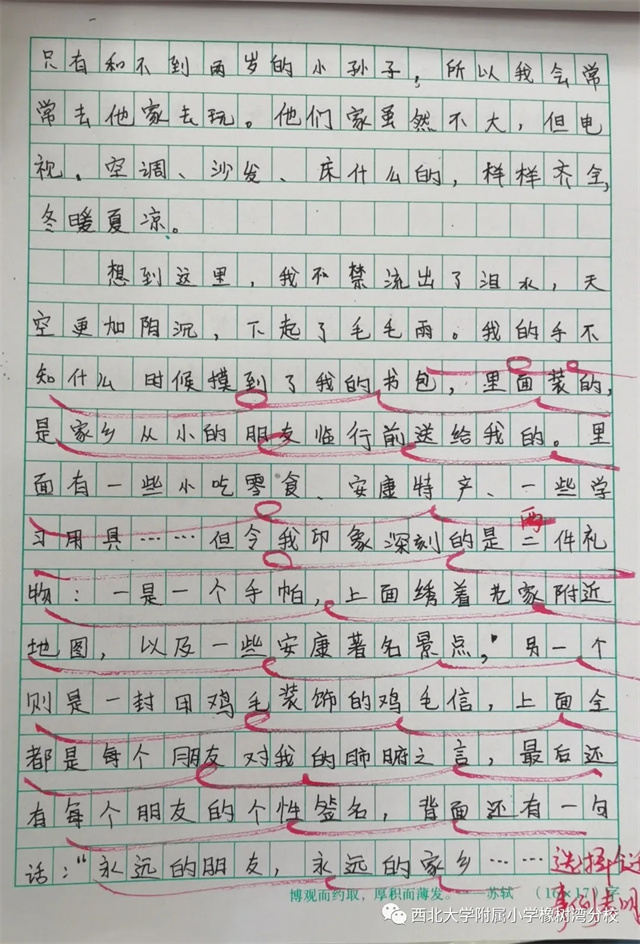 只有和不到两岁的小孙子，所以我会常
常去他家去玩。他们家虽然不大，但电
视、空调、沙发、床什么的，样样齐全，
冬暖夏凉。
想到这里，我不禁流出了泪水，天
空更加阴沉，下起了毛毛雨。我的手不
知什么时候摸到了我的书包，里面装的，
是家乡从小的朋友临行前送给我的。里
面有一些小吃零食、安康特产、一些学
习用具……但令我印象深刻的是二件礼
两
物：一是一个手帕，上面绣着老家附近
地图，以及一些安康著名景点，另一个
则是一封用鸡毛装饰的鸡毛信，上面全
都是每个朋友对我的肺腑之言，最后还
有每个朋友的个性签名，背面还有一句
话：“永远的朋友，永远的家乡……
选择
事例
博观而约取，厚积而薄发。——苏轼 （16×17）字
西北大学附属小学橡树湾分校